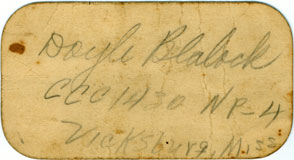 Doyle Blalock
CCC 1430 NP-4
Vicksburg, Miss